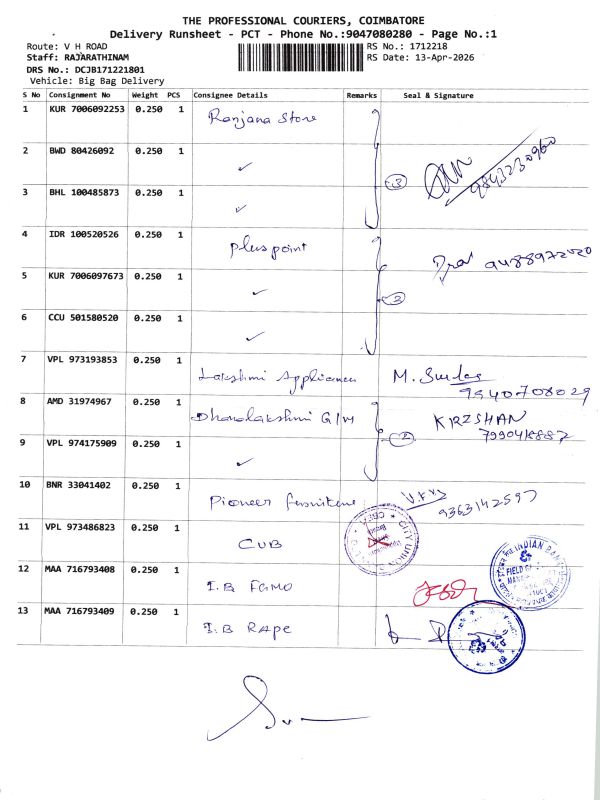 THE PROFESSIONAL COURIERS, COIMBATORE
Delivery Runsheet - PCT - Phone No.:9047080280 - Page No.:1
Route: V H ROAD RS No.: 1712218
Staff: RAJARATHINAM RS Date: 13-Apr-2026
DRS No.: DCJB171221801
Vehicle: Big Bag Delivery
S No Consignment No Weight PCS Consignee Details Remarks Seal & Signature
1 KUR 7006092253 0.250 1 Ranjana Store
2 BWD 80426092 0.250 1 ✓ 3 9843230960
3 BHL 100485873 0.250 1 ✓
4 IDR 100520526 0.250 1 Plus point 9488972020
5 KUR 7006097673 0.250 1 ✓ 3
6 CCU 501580520 0.250 1 ✓
7 VPL 973193853 0.250 1 Lakshmi Appliances M. 9540708029
8 AMD 31974967 0.250 1 Dhanalakshmi G/M KRISHAN
9 VPL 974175909 0.250 1 ✓ 2 7990418887
10 BNR 33041402 0.250 1 Pioneer furniture 9363142597
11 VPL 973486823 0.250 1 CUB CITY UNION
12 MAA 716793408 0.250 1 I.B FGMO INDIAN BANK
13 MAA 716793409 0.250 1 I.B RAPC